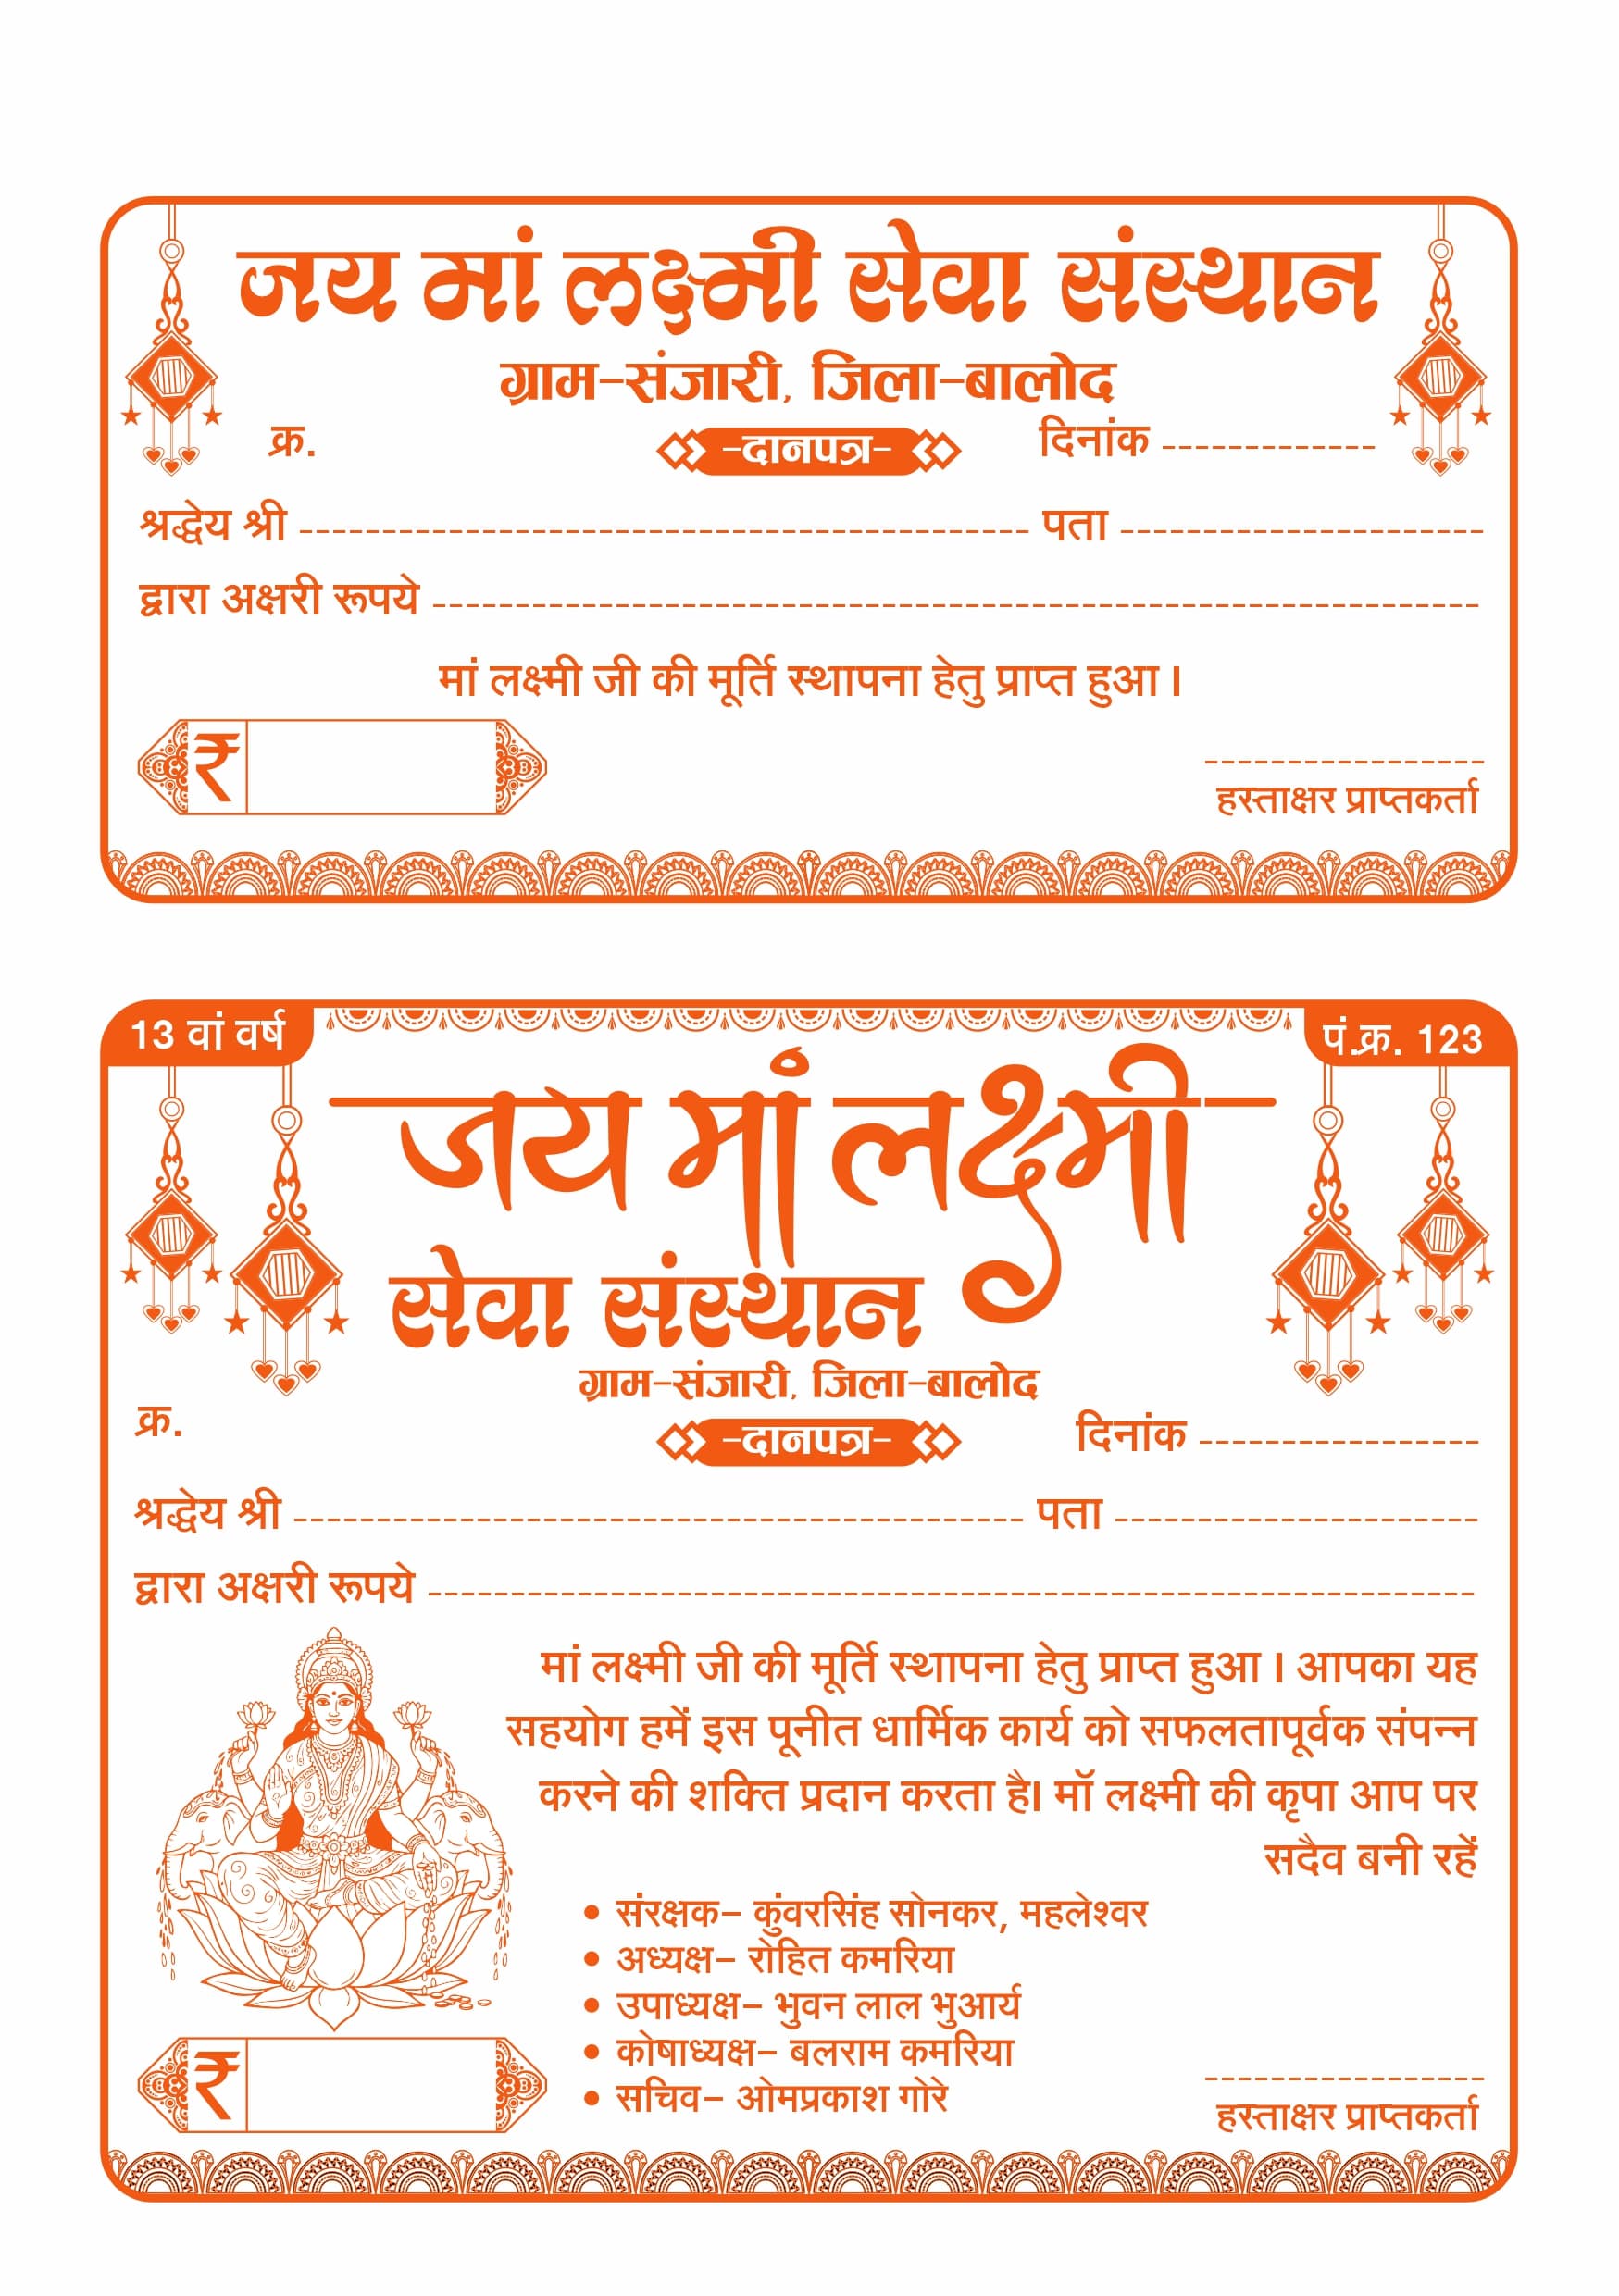 जय मां लक्ष्मी सेवा संस्थान
ग्राम-संजारी, जिला-बालोद
क्र. -दानपत्र- दिनांक -------------
श्रद्धेय श्री --------------------------------------------- पता ----------------------
द्वारा अक्षरी रूपये ----------------------------------------------------------------
मां लक्ष्मी जी की मूर्ति स्थापना हेतु प्राप्त हुआ ।
₹
-----------------
हस्ताक्षर प्राप्तकर्ता
13 वां वर्ष पं.क्र. 123
जय मां लक्ष्मी
सेवा संस्थान
ग्राम-संजारी, जिला-बालोद
क्र. -दानपत्र- दिनांक -----------------
श्रद्धेय श्री --------------------------------------------- पता ----------------------
द्वारा अक्षरी रूपये ----------------------------------------------------------------
मां लक्ष्मी जी की मूर्ति स्थापना हेतु प्राप्त हुआ । आपका यह
सहयोग हमें इस पूनीत धार्मिक कार्य को सफलतापूर्वक संपन्न
करने की शक्ति प्रदान करता है। मॉ लक्ष्मी की कृपा आप पर
सदैव बनी रहें
• संरक्षक- कुंवरसिंह सोनकर, महलेश्वर
• अध्यक्ष- रोहित कमरिया
• उपाध्यक्ष- भुवन लाल भुआर्य
• कोषाध्यक्ष- बलराम कमरिया
• सचिव- ओमप्रकाश गोरे
₹
-----------------
हस्ताक्षर प्राप्तकर्ता